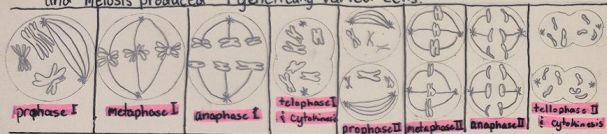 and meiosis produced 4 genetically varied cells.
prophase I
metaphase I
anaphase I
telophase I
& cytokinesis
prophase II
metaphase II
anaphase II
tellophase II
& cytokinesis